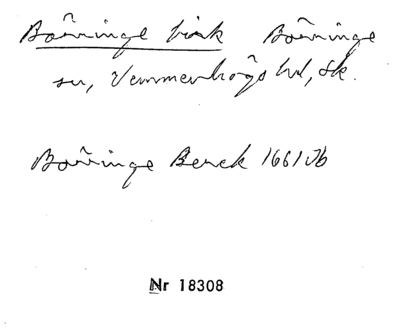 Börringe birk Börringe
sn, Vemmenhögs hd, Sk.
Börringe Berck 1661 Jb
Nr 18308